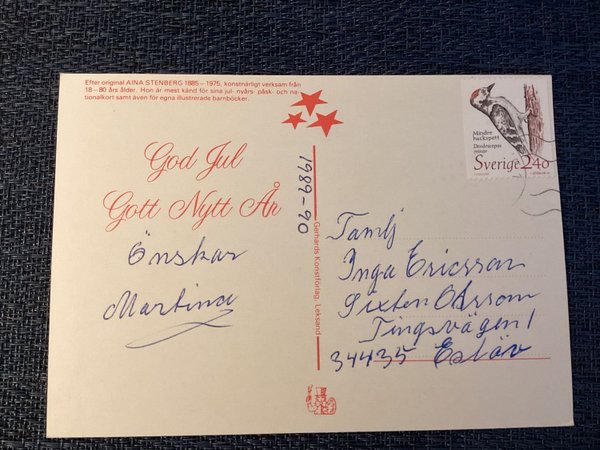 Efter original AINA STENBERG 1885–1975, konstnärligt verksam från
18–80 års ålder. Hon är mest känd för sina jul- nyårs- påsk- och na-
tionalkort samt även för egna illustrerade barnböcker.
God Jul
Gott Nytt År
Önskar
Martina
1989-90
Gerhards Konstförlag, Leksand
Mindre
hackspett
Dendrocopos
minor
Sverige 240
Familj
Inga Ericsson
Sixten Olsson
Tingsvägen 1
34435 Eslöv